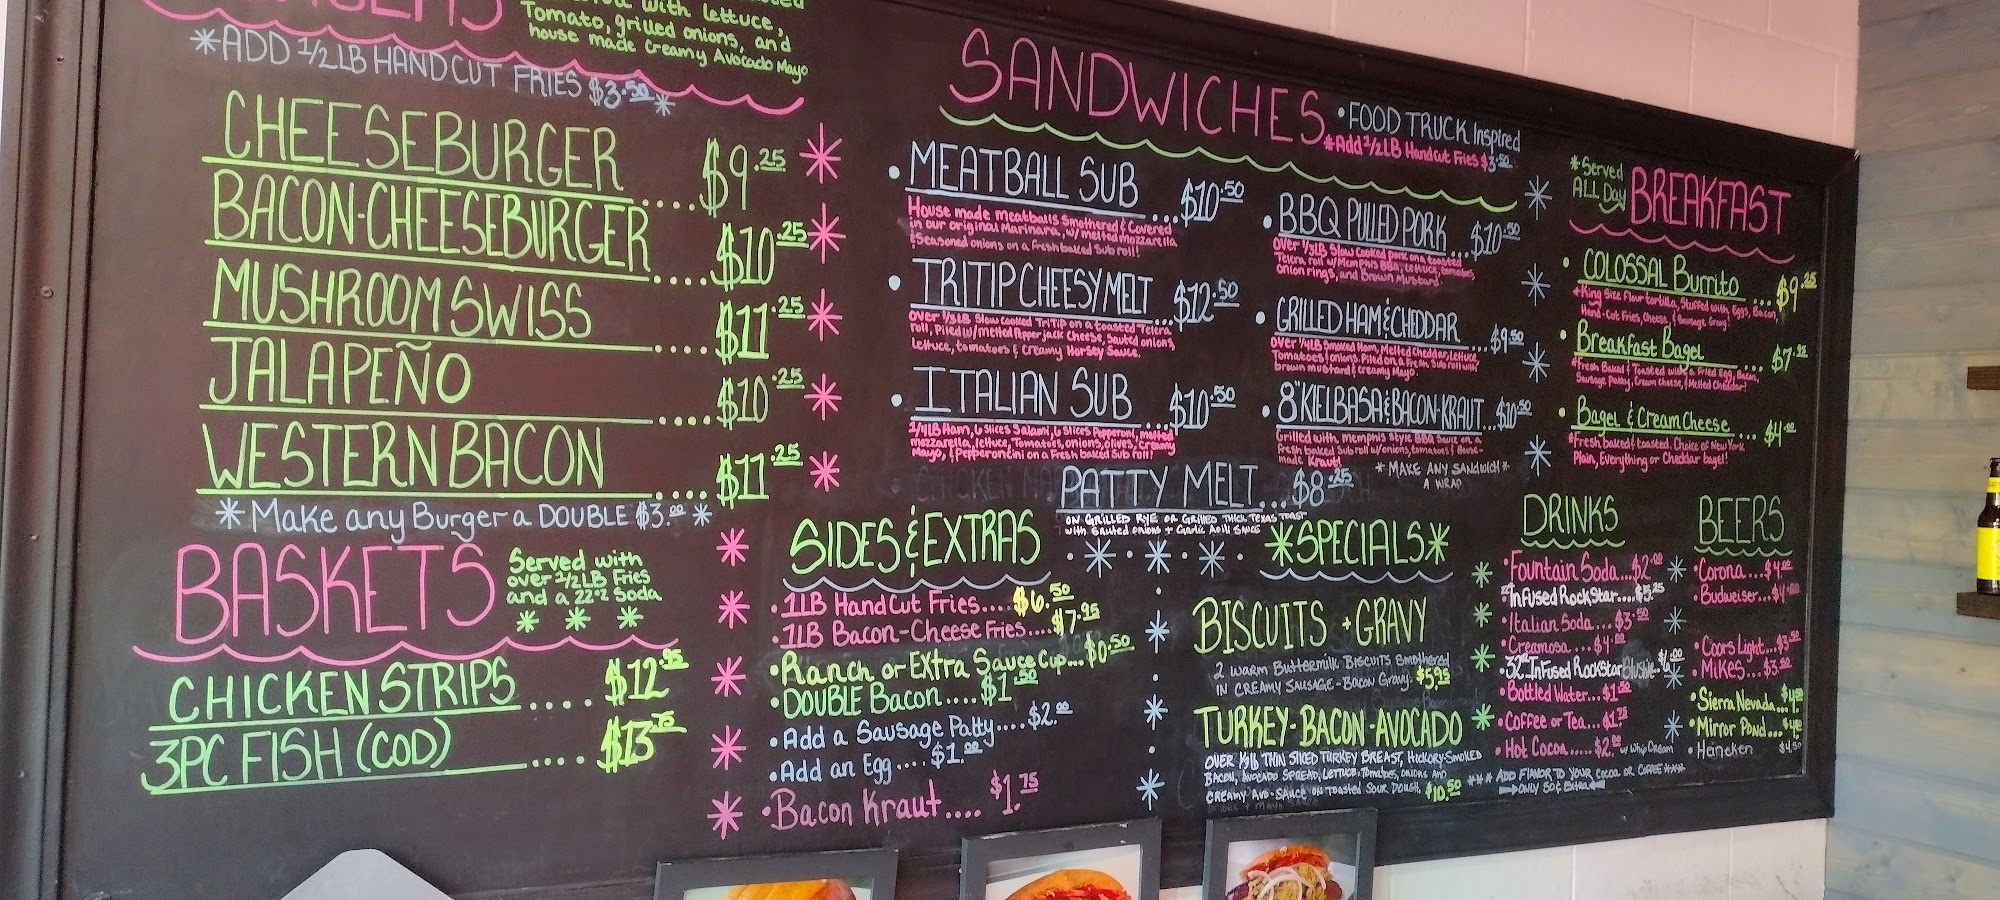 with lettuce,
Tomato, grilled onions, and
house made Creamy Avocado Mayo
*ADD 1/2LB HANDCUT FRIES $3.50*
CHEESEBURGER....$9.25
BACON-CHEESEBURGER...$10.25
MUSHROOM SWISS....$11.25
JALAPEÑO....$10.25
WESTERN BACON....$11.25
*Make any Burger a DOUBLE $3.00*
BASKETS
Served with
over 1/2LB Fries
and a 22oz Soda
CHICKEN STRIPS....$12.95
3PC FISH (COD)....$13.75
SANDWICHES
•FOOD TRUCK Inspired
*Add 1/2LB Handcut Fries $3.50
•MEATBALL SUB...$10.50
House made meatballs Smothered & Covered
in our original Marinara, w/ melted mozzarella
& Seasoned onions on a fresh baked Sub roll!
•TRITIP CHEESY MELT...$12.50
over 1/3LB Slow Cooked TriTip on a toasted Telera
roll, Piled w/ melted Pepper jack Cheese, Sauted onions,
Lettuce, tomatoes & Creamy Horsey Sauce.
•ITALIAN SUB...$10.50
1/4LB Ham, 6 Slices Salami, 6 Slices Pepperoni, melted
mozzarella, lettuce, Tomatoes, onions, olives, Creamy
Mayo, & Pepperoncini on a Fresh baked Sub roll!
•BBQ PULLED PORK...$10.50
over 1/3LB Slow Cooked pork on a toasted
Telera roll w/ Memphis BBQ, Lettuce, tomatoes,
onion rings, and Brown Mustard.
•GRILLED HAM & CHEDDAR...$9.50
over 1/4LB Smoked Ham, Melted Cheddar, Lettuce,
Tomatoes & onions. Piled on a Fresh Sub roll with
brown mustard & creamy Mayo.
•8" KIELBASA & BACON-KRAUT...$10.50
Grilled with Memphis Style BBQ Sauce on a
fresh baked Sub roll w/ onions, tomatoes & House-
made Kraut!
*MAKE ANY SANDWICH*
A WRAP
PATTY MELT...$8.25
ON GRILLED RYE OR GRILLED THICK TEXAS TOAST
with Sauted onions + Garlic Aoili Sauce
*Served
ALL Day
BREAKFAST
•COLOSSAL Burrito...$9.25
*King Size flour tortilla, Stuffed with, Eggs, Bacon,
Hand-Cut Fries, Cheese, & Sausage Gravy!
•Breakfast Bagel...$7.25
*Fresh Baked & Toasted with, a Fried Egg, Bacon,
Sausage Patty, Cream Cheese, & Melted Cheddar!
•Bagel & Cream Cheese...$4.00
*Fresh baked & toasted. Choice of New York
Plain, Everything or Cheddar bagel!
SIDES & EXTRAS
•1LB Hand Cut Fries....$6.50
•1LB Bacon-Cheese Fries....$7.95
•Ranch or Extra Sauce Cup...$0.50
•DOUBLE Bacon....$1.50
•Add a Sausage Patty....$2.00
•Add an Egg....$1.00
•Bacon Kraut....$1.75
*SPECIALS*
BISCUITS + GRAVY
2 warm Buttermilk Biscuits Smothered
IN CREAMY SAUSAGE-Bacon Gravy. $5.95
TURKEY-BACON-AVOCADO
OVER 1/3lb THIN SLICED TURKEY BREAST, HICKORY-SMOKED
BACON, AVOCADO SPREAD, LETTUCE, Tomatoes, ONIONS AND
CREAMY AVO-SAUCE ON TOASTED SOUR DOUGH. $10.50
DRINKS
•Fountain Soda...$2.00
InFused RockStar....$5.25
•Italian Soda...$3.50
•Creamosa.....$4.00
•32oz InFused RockStar Slushie..
•Bottled Water...$1.50
•Coffee or Tea...$1.75
•Hot Cocoa.....$2.00 w/ Whip Cream
*** ADD FLAVOR TO YOUR COCOA OR COFFEE ***
ONLY 50¢ Extra
BEERS
•Corona...$4.00
•Budweiser...$4.00
•Coors Light...$3.50
•Mikes...$3.50
•Sierra Nevada...$4.50
•Mirror Pond...$4.50
•Heineken $4.50